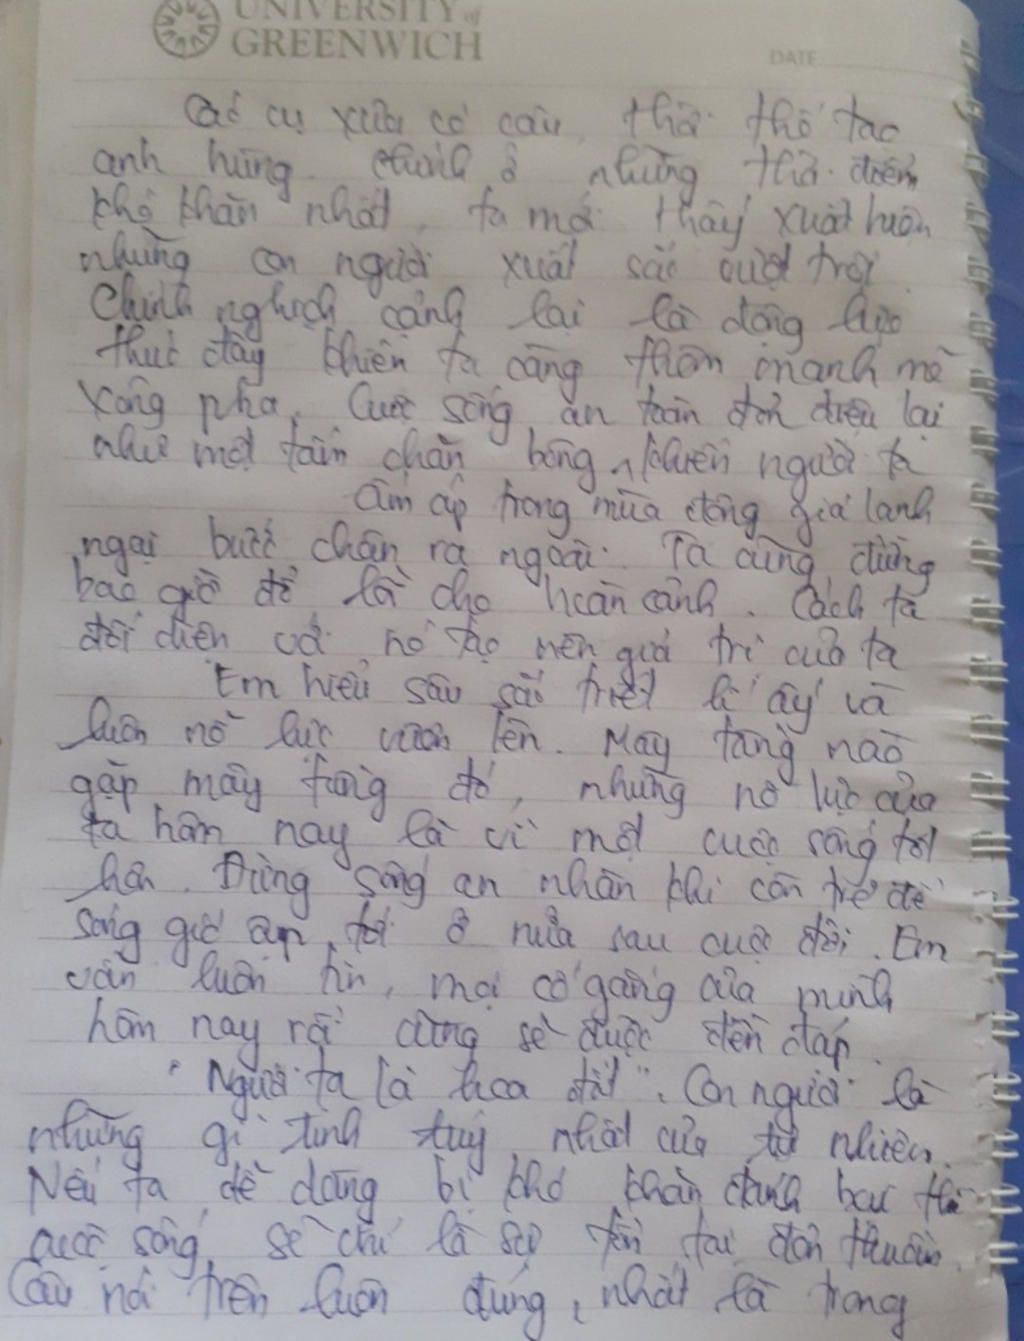 UNIVERSITY of
GREENWICH
DATE
Các cụ xưa có câu, thời thế tạo
anh hùng. Chính ở những thời điểm
khó khăn nhất, ta mới thấy xuất hiện
những con người xuất sắc vượt trội.
Chính nghịch cảnh lại là động lực
thúc đẩy khiến ta càng thêm mạnh mẽ
xông pha. Cuộc sống an toàn đơn điệu lại
như một tấm chăn bông, khiến người ta
ấm áp trong mùa đông giá lạnh
ngại bước chân ra ngoài. Ta cũng đừng
bao giờ đổ lỗi cho hoàn cảnh. Cách ta
đối diện với nó tạo nên giá trị của ta
Em hiểu sâu sắc triết lí ấy và
luôn nỗ lực vươn lên. Mây tầng nào
gặp mây tầng đó, những nỗ lực của
ta hôm nay là vì một cuộc sống tốt
hơn. Đừng sống an nhàn khi còn trẻ để
sóng gió ập tới ở nửa sau cuộc đời. Em
vẫn luôn tin, mọi cố gắng của mình
hôm nay rồi cũng sẽ được đền đáp.
"Người ta là hoa đất". Con người là
những gì tinh tuý nhất của tự nhiên.
Nếu ta dễ dàng bị khó khăn đánh bại thì
cuộc sống sẽ chỉ là sự tồn tại đơn thuần.
Câu nói trên luôn đúng, nhất là trong